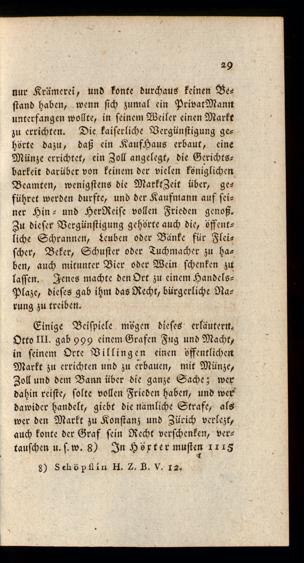 29
nur Krämerei, und konte durchaus keinen Be-
stand haben, wenn sich zumal ein PrivatMann
unterfangen wollte, in seinem Weiler einen Markt
zu errichten. Die kaiserliche Vergünstigung ge-
hörte dazu, daß ein KaufHaus erbaut, eine
Münze errichtet, ein Zoll angelegt, die Gerichts-
barkeit darüber von keinem der vielen königlichen
Beamten, wenigstens die MarktZeit über, ge-
führet werden durfte, und der Kaufmann auf sei-
ner Hin- und HerReise vollen Frieden genoß.
Zu dieser Vergünstigung gehörte auch die, öffent-
liche Schrannen, Leuben oder Bänke für Flei-
scher, Beker, Schuster oder Tuchmacher zu ha-
ben, auch mitunter Bier oder Wein schenken zu
lassen. Jenes machte den Ort zu einem Handels-
Plaze, dieses gab ihm das Recht, bürgerliche Na-
rung zu treiben.
Einige Beispiele mögen dieses erläutern.
Otto III. gab 999 einem Grafen Fug und Macht,
in seinem Orte Villingen einen öffentlichen
Markt zu errichten und zu erbauen, mit Münze,
Zoll und dem Bann über die ganze Sache; wer
dahin reiste, solte vollen Frieden haben, und wer
dawider handelt, giebt die nämliche Strafe, als
wer den Markt zu Konstanz und Zürich verlezt,
auch konte der Graf sein Recht verschenken, ver-
tauschen u. s. w. 8) In Höxter musten 1115
8) Schöpflin H. Z. B. V. 12.